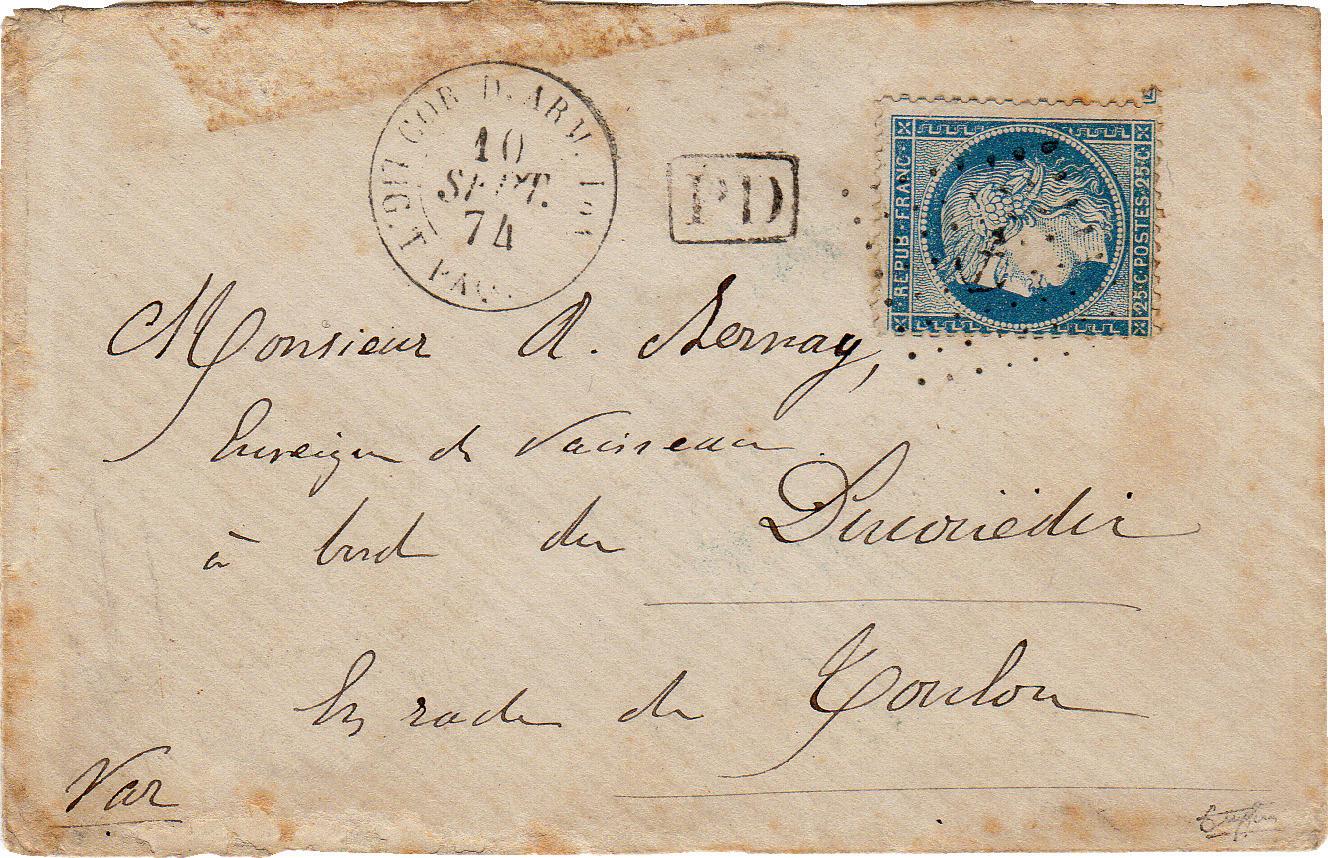 LIG. T COR. D. ARM. PAQ.
10
SEPT.
74
PD
REPUB·FRANC·
25·C·POSTES·25·C·
Monsieur A. Mernay,
Enseigne de Vaisseau
à bord du Ducouëdic
En rade de Toulon
Var